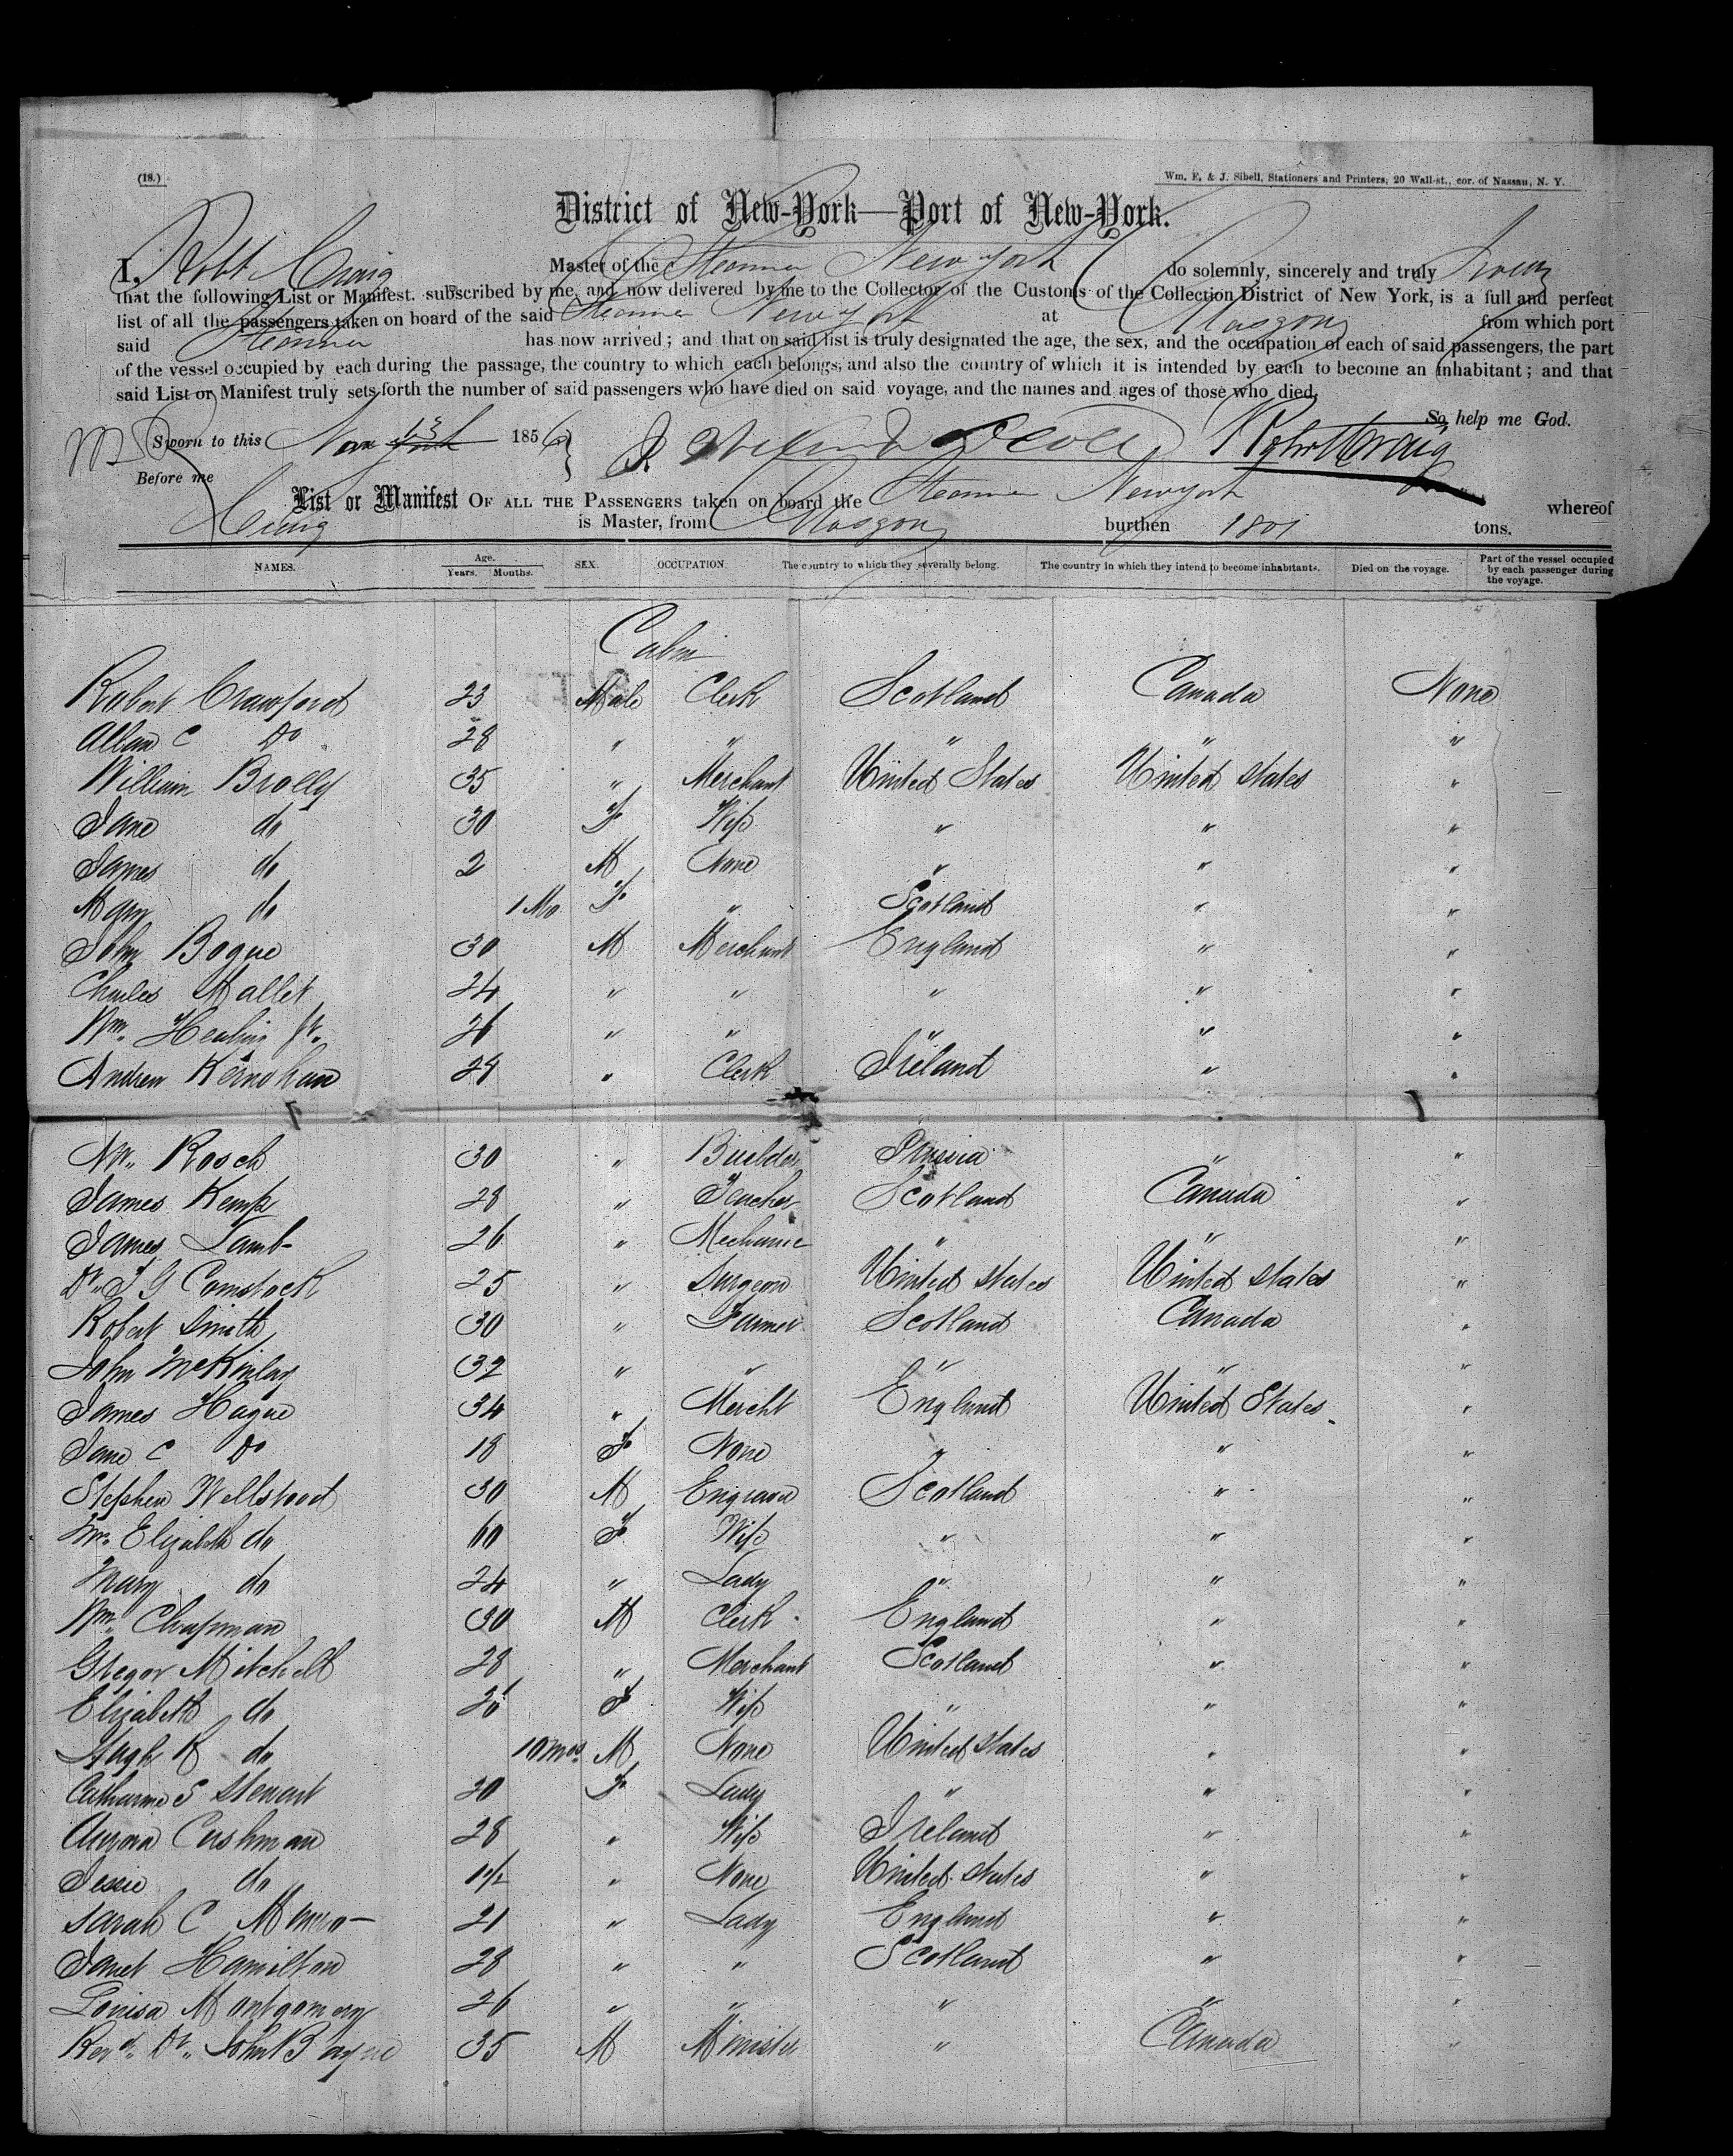 (18.)
Wm. E. & J. Sibell, Stationers and Printers, 20 Wall-st., cor. of Nassau, N. Y.
District of New-York—Port of New-York.
I, Robt Craig Master of the Steamer New York do solemnly, sincerely and truly Swear
that the following List or Manifest. subscribed by me, and now delivered by me to the Collector of the Customs of the Collection District of New York, is a full and perfect
list of all the passengers taken on board of the said Steamer New York at Glasgow from which port
said Steamer has now arrived; and that on said list is truly designated the age, the sex, and the occupation of each of said passengers, the part
of the vessel occupied by each during the passage, the country to which each belongs, and also the country of which it is intended by each to become an inhabitant; and that
said List or Manifest truly sets forth the number of said passengers who have died on said voyage, and the names and ages of those who died.
So help me God.
Sworn to this Nov 1856
Robert Craig
Before me
List or Manifest OF ALL THE PASSENGERS taken on board the Steamer New york whereof
Craig is Master, from Glasgow burthen 1801 tons.
NAMES. Age. Years. Months. SEX. OCCUPATION. The country to which they severally belong. The country in which they intend to become inhabitants. Died on the voyage. Part of the vessel occupied by each passenger during the voyage.
Cabin
Robert Crawford 23 Male Clerk Scotland Canada None
Allan C Do 28 " " " " "
William Brolly 35 " Merchant United States United States "
Jane do 30 F Wife " " "
James do 2 M None " " "
Mary do 1 Mo F " Scotland " "
John Bogue 30 M Merchant England " "
Charles Mallet 24 " " " " "
Wm. Jr. 26 " " " " "
Andrew Kernohan 28 " Clerk Ireland " "
Rosch 30 " Builder Prussia " "
James Kemp 28 " Teacher Scotland Canada "
James Lamb 26 " Mechanic " " "
Dr. T G Comstock 25 " Surgeon United States United States "
Robert Smith 30 " Farmer Scotland Canada "
John McKinlay 32 " " " " "
James Hague 34 " Mercht England United States "
Jane C Do 18 F None " " "
Stephen Wellstood 30 M Engraver Scotland " "
Mrs. Elizabeth do 60 F Wife " " "
Mary do 24 " Lady " " "
Wm. Chapman 30 M Clerk England " "
Gregor Mitchell 28 " Merchant Scotland " "
Elizabeth do 26 F Wife " " "
Hugh K do 10 mos M None United States " "
Catharine S Stewart 30 F Lady " " "
Aurora Cushman 28 " Wife Ireland " "
Jessie do 1 1/2 " None United States " "
Sarah C Munro 21 " Lady England " "
Janet Hamilton 28 " " Scotland " "
Louisa Montgomery 26 " " " " "
Revd. Dr. John Bayne 35 M Minister " Canada "